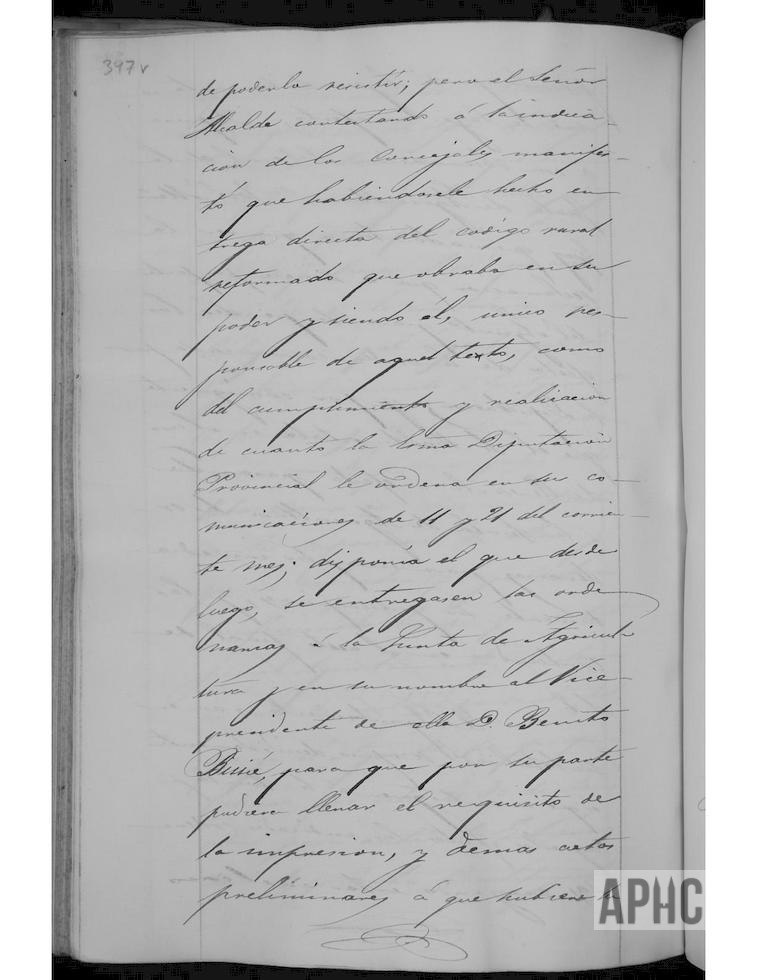 397 v
de poderla resistir; pero el Señor
Alcalde contestando á la indica-
cion de los Concejales manifes-
tó que habiendosele hecho en-
trega directa del codigo rural
reformado que obraba en su
poder y siendo él, unico res-
ponsable de aquel texto, como
del cumplimiento y realizacion
de cuanto la Diputacion
Provincial le ordena en su co-
municaciones de 11 y 21 del corrien-
te mes; disponia el que desde
luego, se entregasen las orde
nanzas á la Junta de Agricul-
tura y en su nombre al Vice-
presidente de ella D. Benito
para que por su parte
pudiera llenar el requisito de
la impresion, y demas actos
preliminares á que hubiere lu
APHC